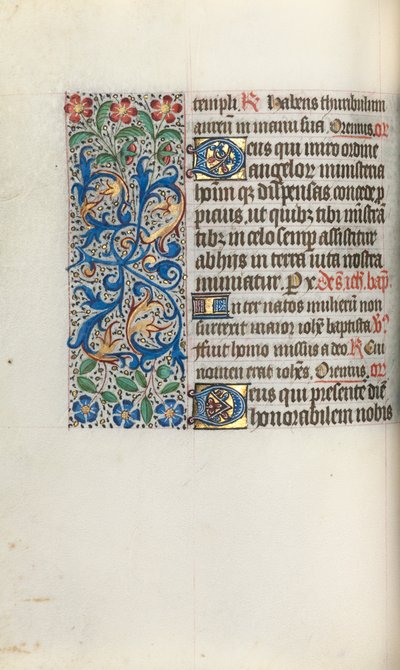 templi. R Habens thuribulum
aureū in manu sua. Oremus. or
Deus qui miro ordine
angelor ministeria
hoim qz dispensas concede p
picius, ut quibz tibi mīstrā
tibz in celo semper assistitur
ab hijs in terra uita nostra
muniatur. P x. De s̄ ioh. bap.
Inter natos mulierū non
surrexit maior iohē baptista. V
ffuit homo missus a deo. R Cui
nomen erat iohēs. Oremus. or
Deus qui presentē diē
honorabilem nobis